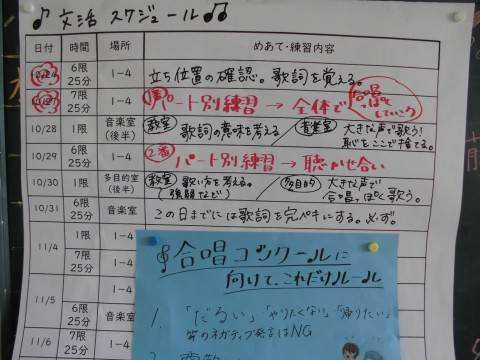 ♪ 文活 スケジュール ♪♫
日付 時間 場所 めあて・練習内容
10/24 6限 25分 1-4 立ち位置の確認。歌詞を覚える。
10/27 7限 25分 1-4 1番 パート別練習 → 全体で 合唱っぽくしていく
10/28 1限 音楽室(後半) 教室 歌詞の意味を考える 音楽室 大きな声で歌う! 恥をここで捨てる。
10/29 6限 25分 1-4 2番 パート別練習 → 聴かせ合い
10/30 1限 多目的室(後半) 教室 歌い方を考える。(強弱など) 多目的 大きな声で合唱っぽく歌う。
10/31 6限 25分 音楽室 この日までには歌詞を完ペキにする。必ず。
11/4 1限 1-4
7限 25分 1-4
11/5 1-4
6限 25分 音楽室
11/6 6限 25分 1-4
合唱コンクールに
向けて、これだけルール
1. 「だるい」「やりたくない」「帰りたい」
等のネガティブ発言はNG